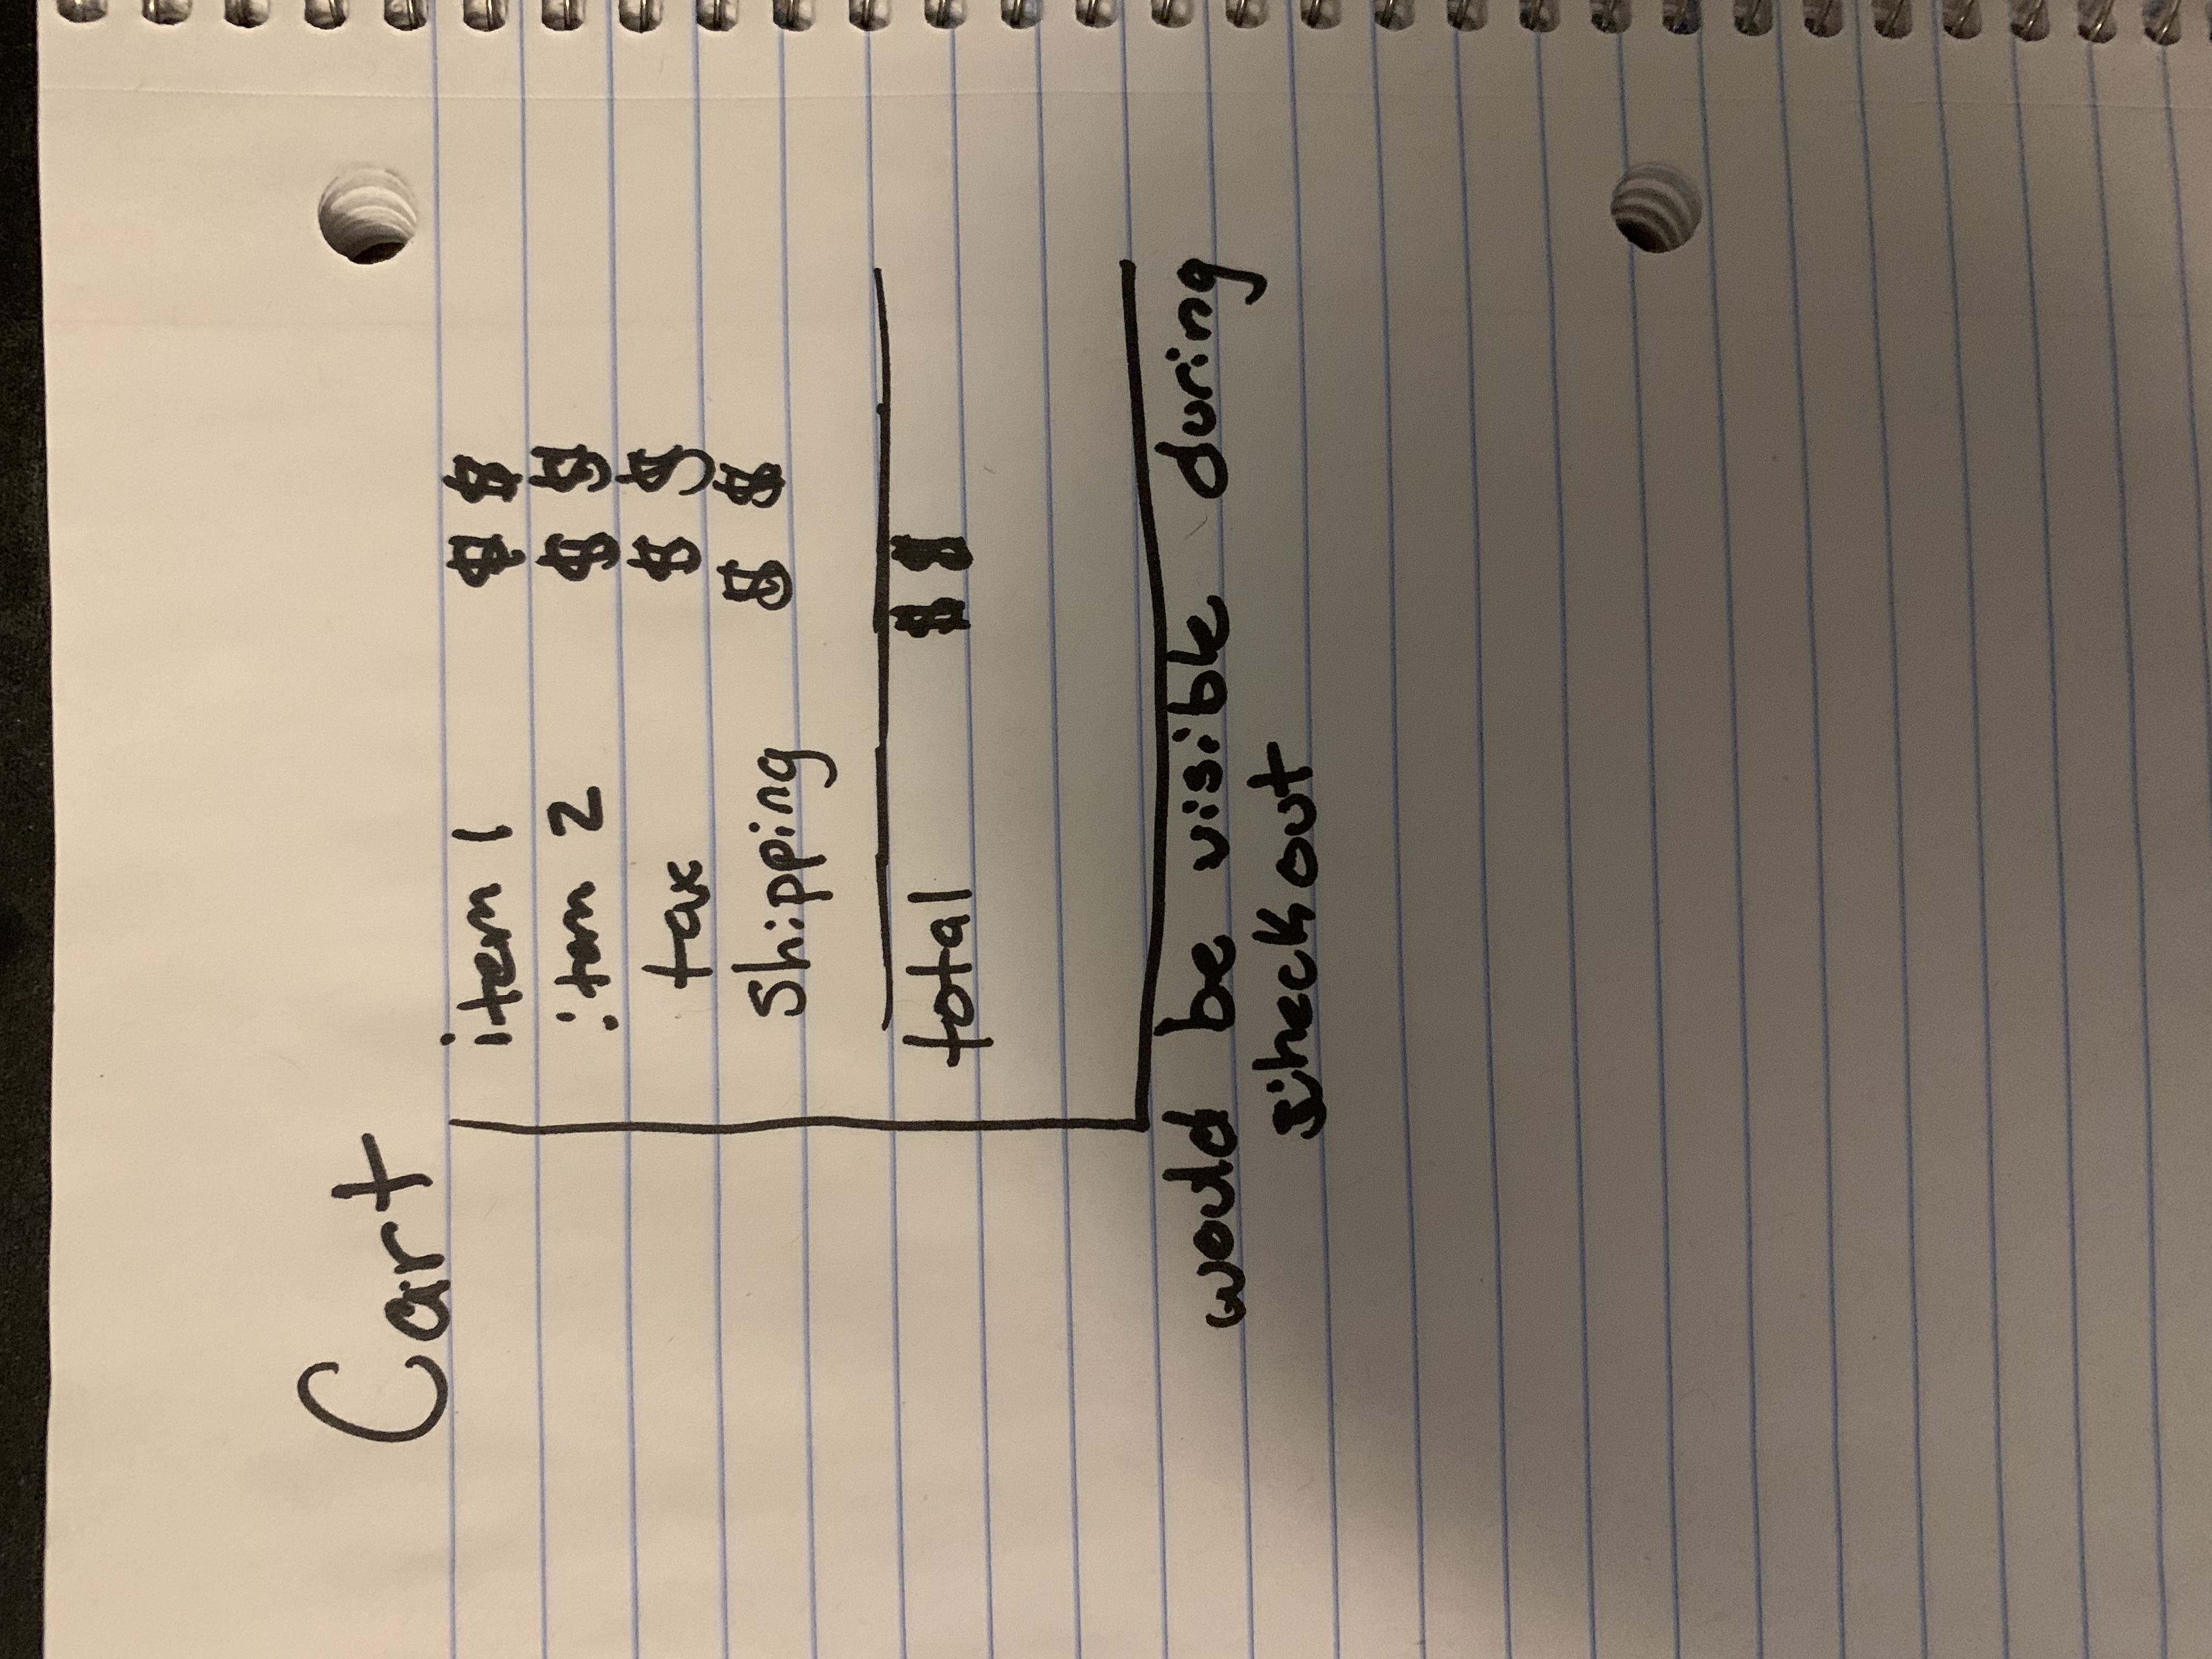 Cart
item 1 $ $
item 2 $ $
tax $ $
shipping $ $
total $ $
would be visible during
checkout